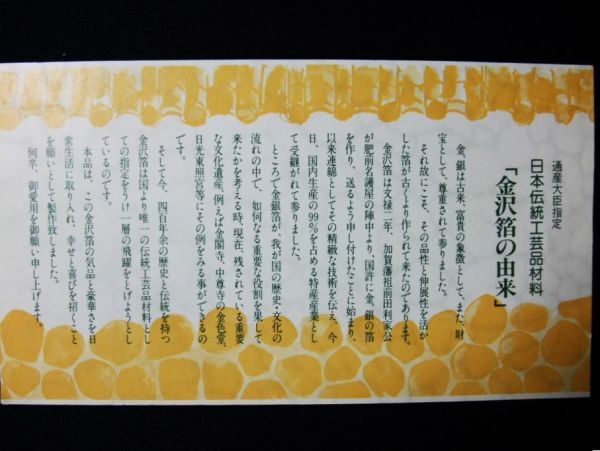 通産大臣指定
日本伝統工芸品材料
「金沢箔の由来」
金、銀は古来、富貴の象徴として、また、財
宝として、尊重されて参りました。
それ故にこそ、その品性と伸展性を活か
した箔が古くより作られて来たのであります。
金沢箔は文禄二年、加賀藩祖前田利家公
が肥前名護屋の陣中より、国許に金、銀の箔
を作り、送るよう申し付けたことに始まり、
以来連綿としてその精緻な技術を伝え、今
日、国内生産の99%を占める特産産業とし
て受継がれて参りました。
ところで金銀箔が、我が国の歴史・文化の
流れの中で、如何なる重要な役割を果して
来たかを考える時、現在、残されている重要
な文化遺産、例えば金閣寺、中尊寺の金色堂、
日光東照宮等にその例をみる事ができるの
です。
そして今、四百年余の歴史と伝統を持つ
金沢箔は国より唯一の伝統工芸品材料とし
ての指定をうけ一層の飛躍をとげようとし
ているのです。
本品は、この金沢箔の気品と豪華さを日
常生活に取り入れ、幸せと喜びを招くこと
を願いとして製作致しました。
何卒、御愛用を御願い申し上げます。